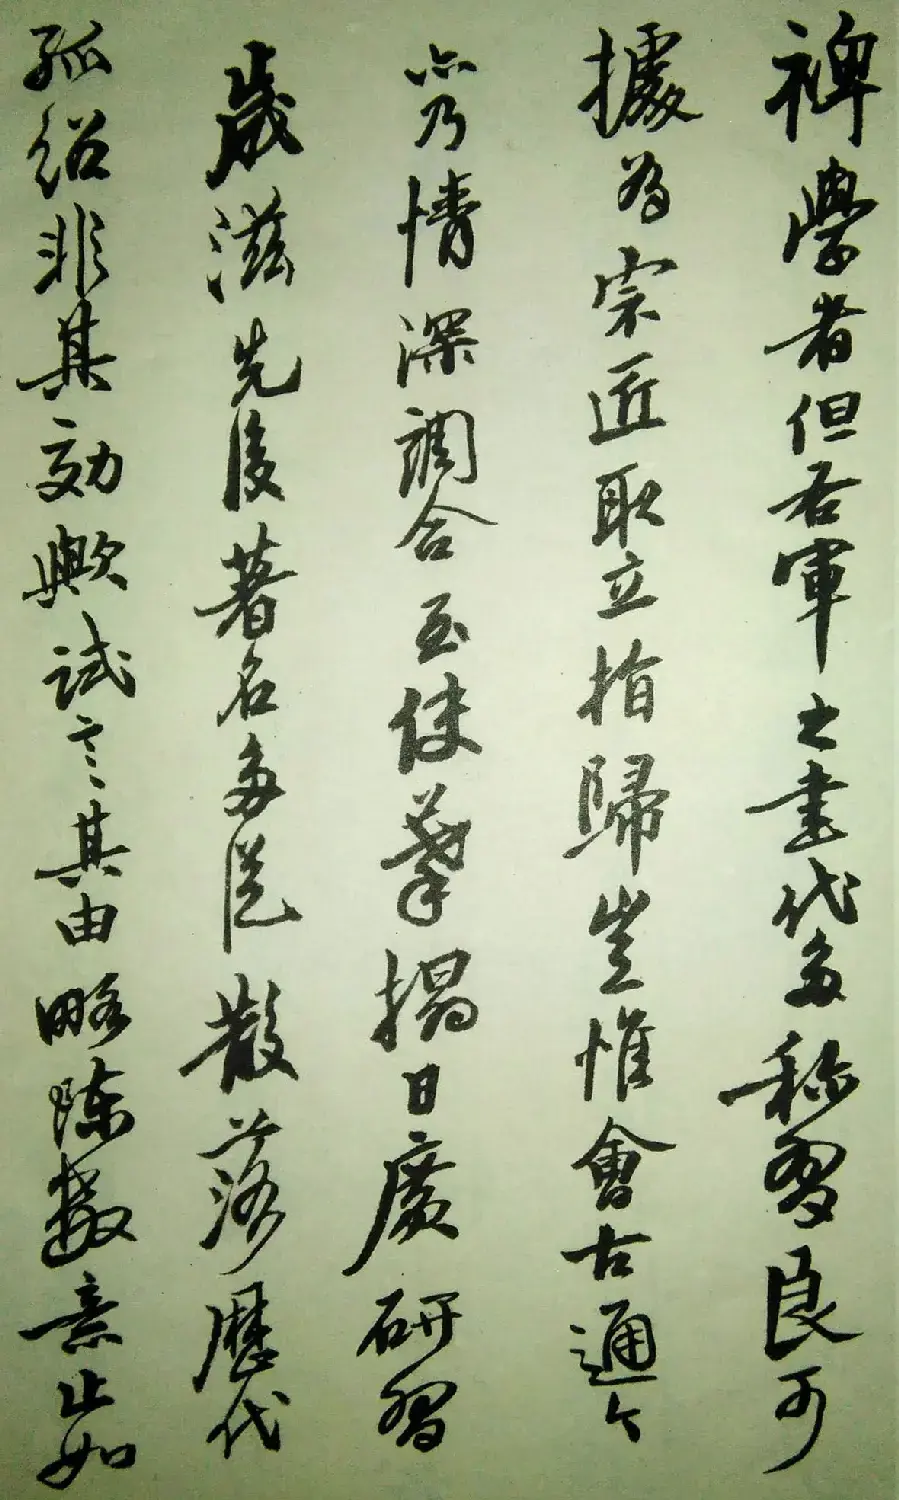 裨學者但右軍之書代多稱習良可
據為宗匠取立指歸豈惟會古通今
亦乃情深調合至使摹搨日廣研習
歲滋先後著名多從散落歷代
孤紹非其効歟試言其由略陳數意止如